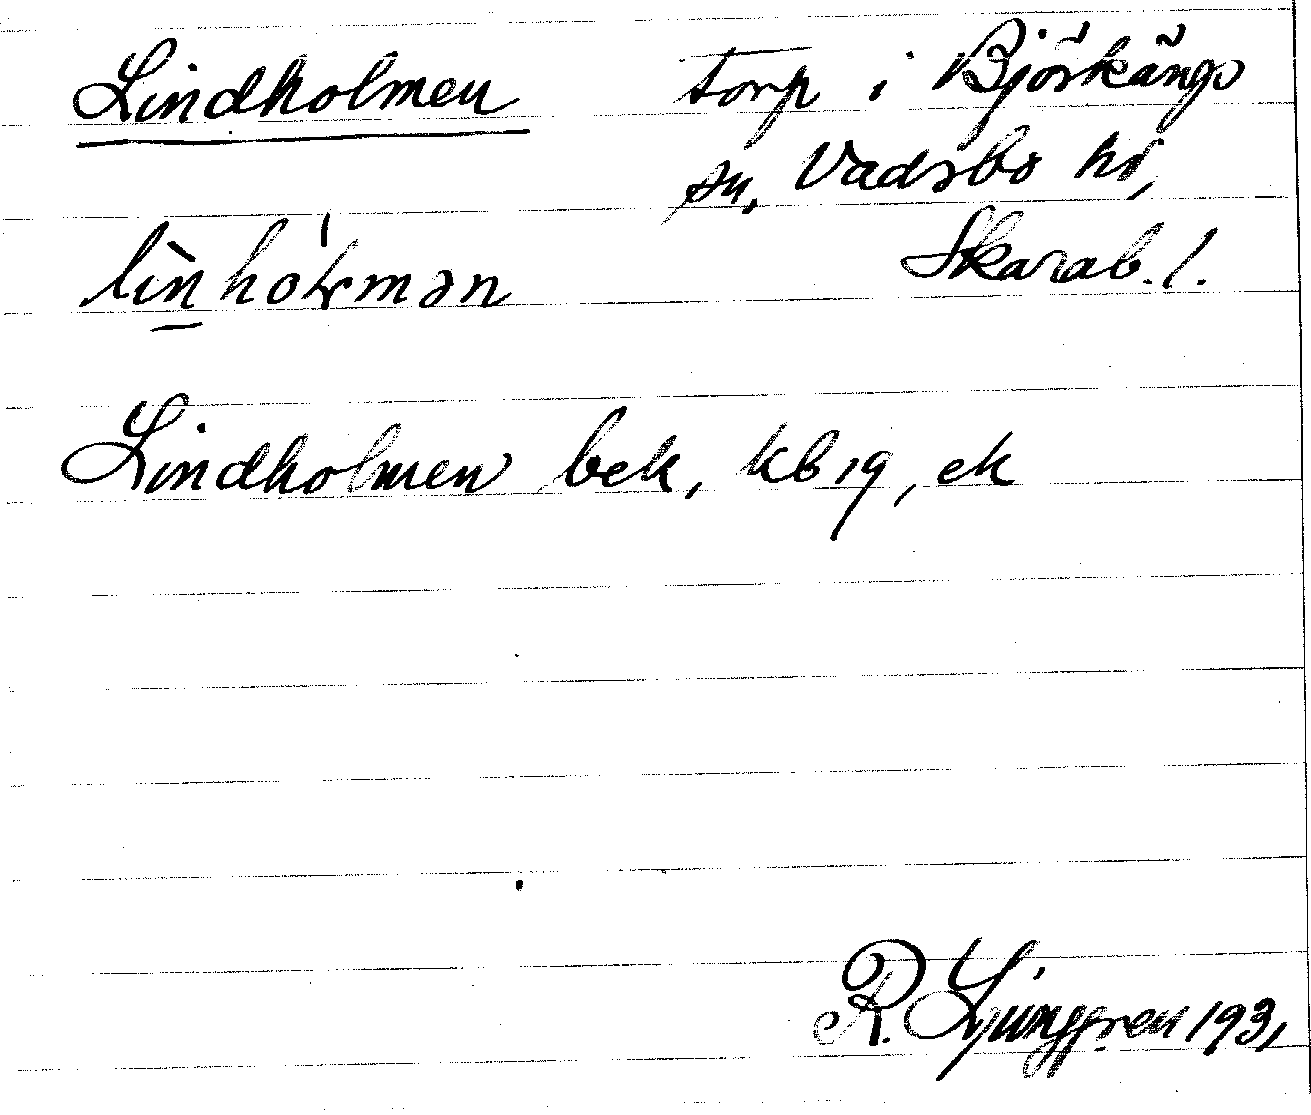 Lindholmen torp i Björkängs
sn, Vadsbo hd,
Skarab. l.
Lindholmen bek, kb 19, ek
R. Ljunggren 1931